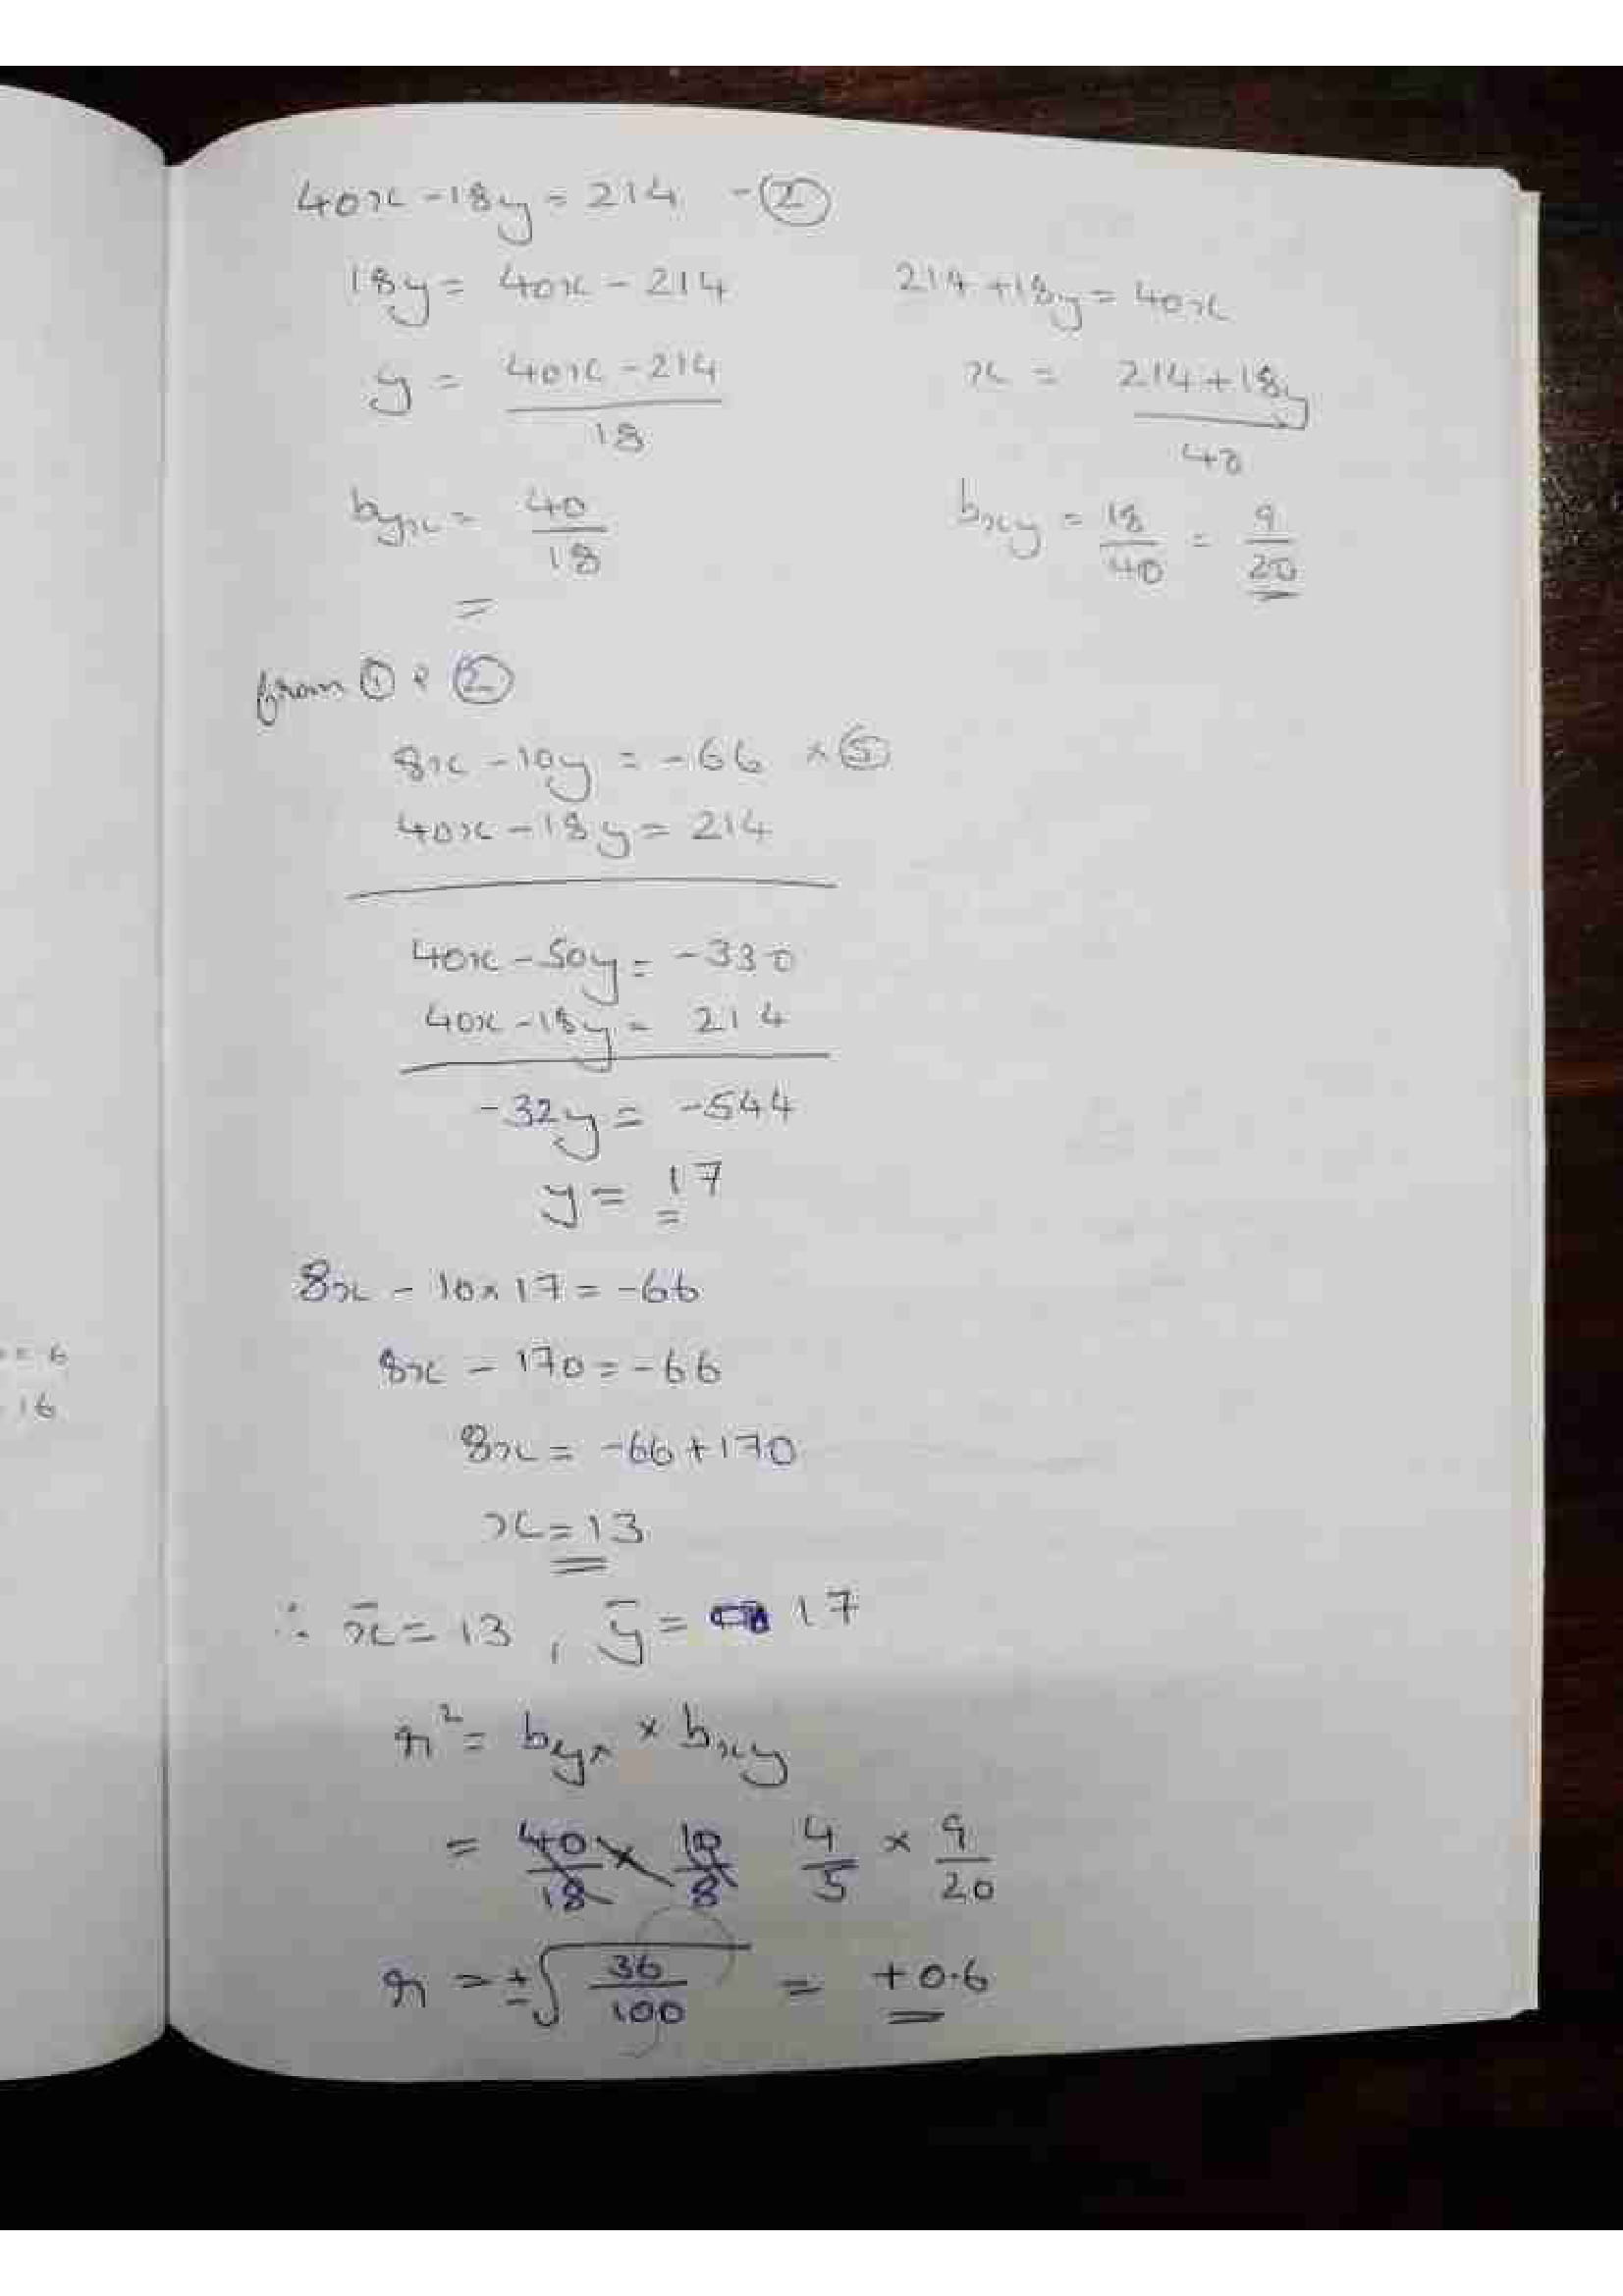 40x - 18y = 214 - ②
18y = 40x - 214
y = 40x - 214 / 18
byx = 40 / 18
=
214 + 18y = 40x
x = 214 + 18y / 40
bxy = 18 / 40 = 9 / 20
from ① & ②
8x - 10y = -66 × ⑤
40x - 18y = 214
40x - 50y = -330
40x - 18y = 214
-32y = -544
y = 17
8x - 10 × 17 = -66
8x - 170 = -66
8x = -66 + 170
x = 13
∴ x̄ = 13 , ȳ = 17
r² = byx × bxy
= 40/18 × 10/8 4/5 × 9/20
r = ±√36/100 = +0.6
= 6
16